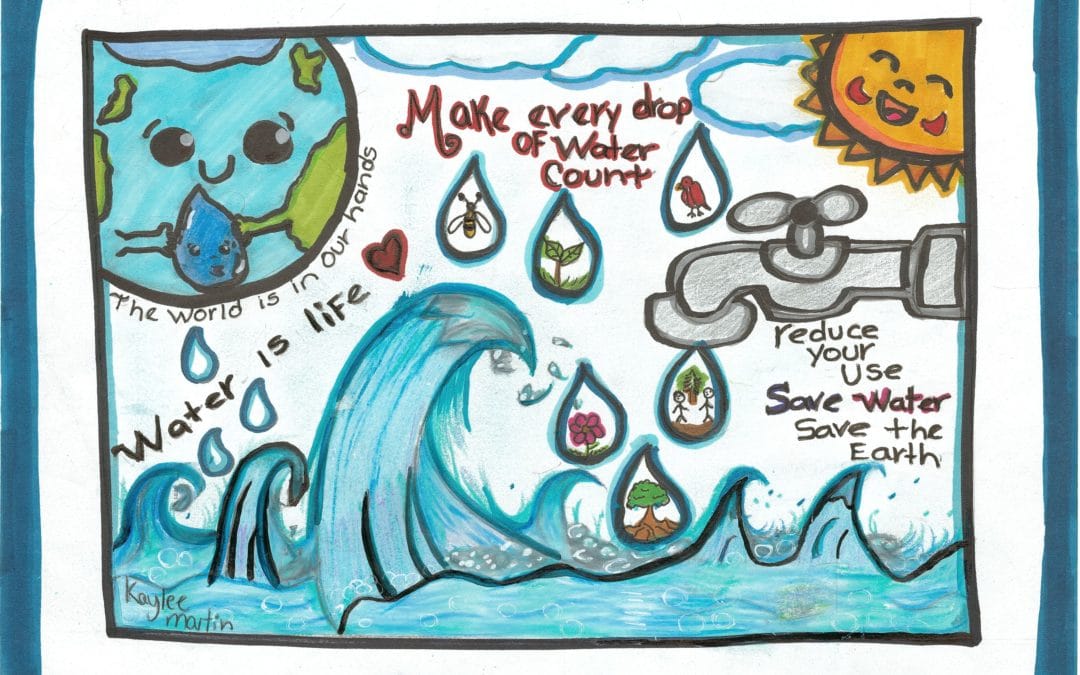 Make every drop
OF Water
Count
The World is in our hands
Water is life
reduce
your
Use
Save Water
Save the
Earth
Kaylee
Martin